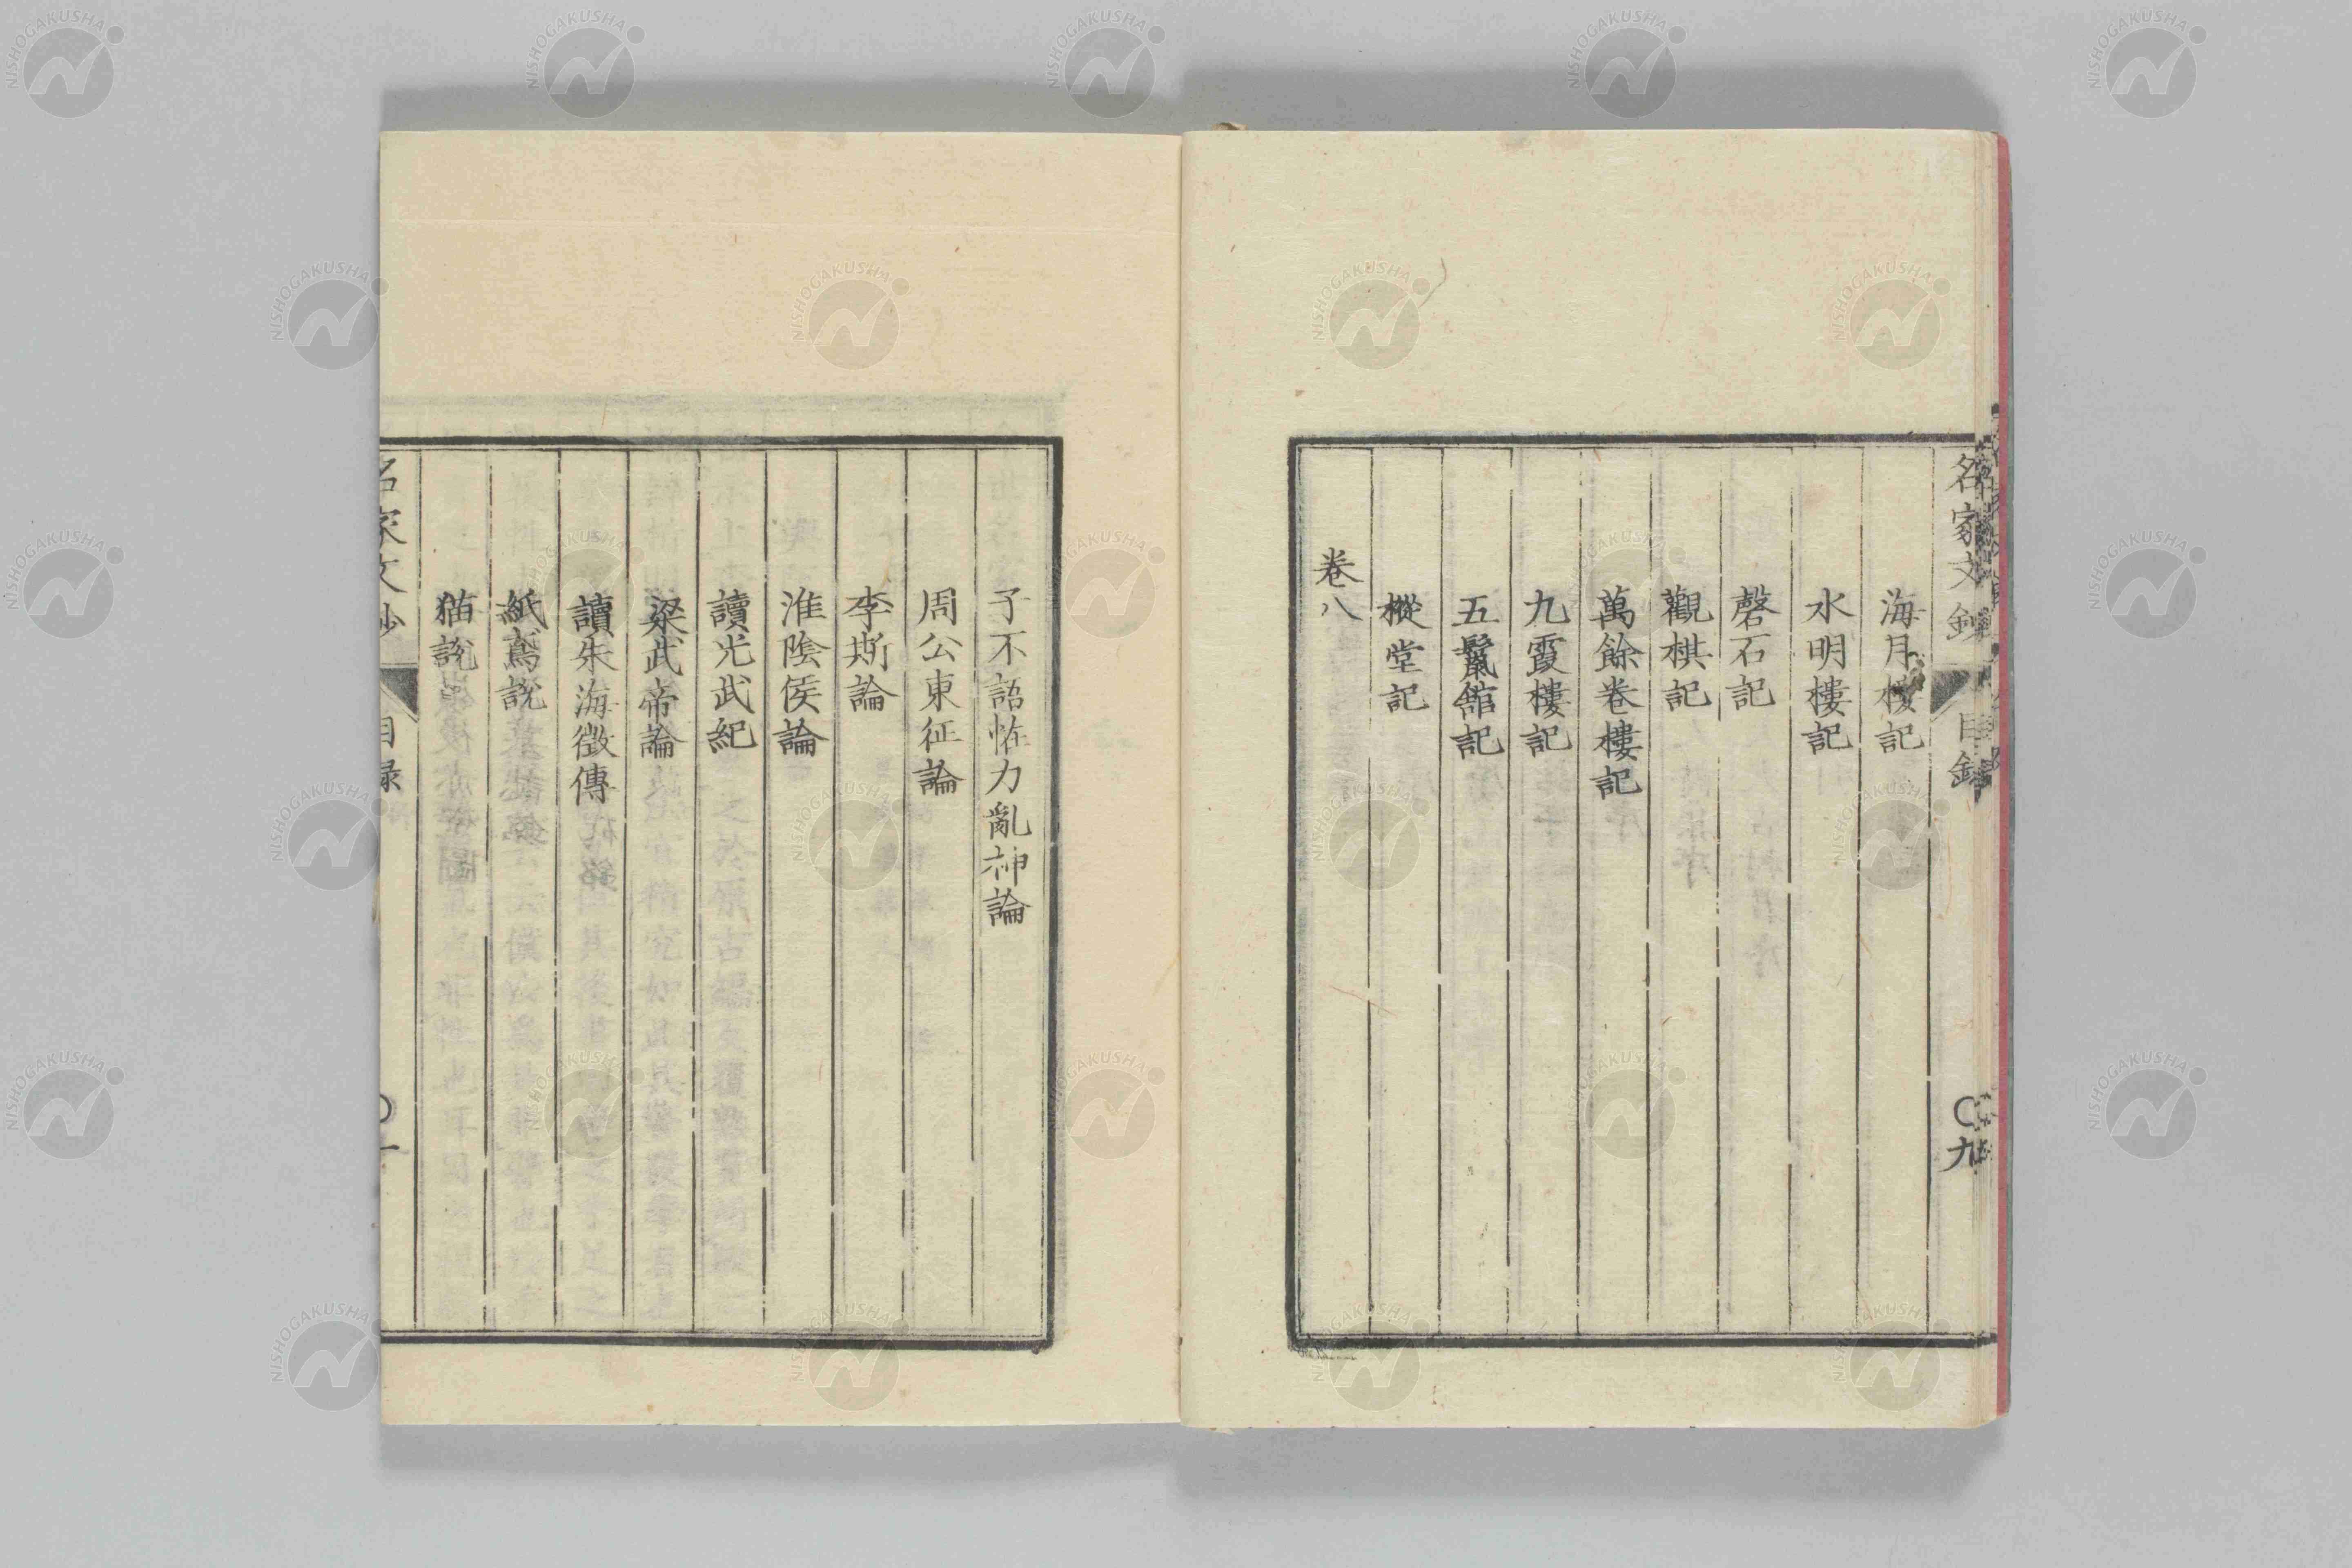 名家文鈔 目錄 〇九
海月樓記
水明樓記
磬石記
觀棋記
萬餘卷樓記
九霞樓記
五鬣舘記
樅堂記
卷八
子不語恠力亂神論
周公東征論
李斯論
淮陰侯論
讀光武紀
梁武帝論
讀朱海徵傳
紙鳶說
猫說
名家文鈔 目錄
NISHOGAKUSHA